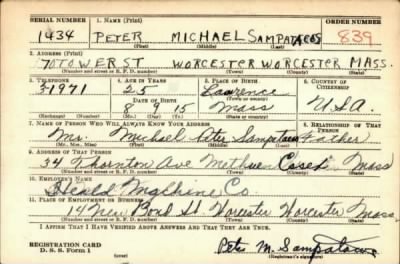 SERIAL NUMBER 1. NAME (Print) ORDER NUMBER
1434 PETER MICHAEL SAMPATACOS 839
(First) (Middle) (Last)
2. ADDRESS (Print)
70 TOWER ST WORCESTER WORCESTER MASS.
(Number and street or R. F. D. number) (Town) (County) (State)
3. TELEPHONE 4. AGE IN YEARS 5. PLACE OF BIRTH 6. COUNTRY OF CITIZENSHIP
3-1971 25 Lawrence
DATE OF BIRTH (Town or county)
8 9 15 Mass U.S.A.
(Exchange) (Number) (Mo.) (Day) (Yr.) (State or country)
7. NAME OF PERSON WHO WILL ALWAYS KNOW YOUR ADDRESS 8. RELATIONSHIP OF THAT PERSON
Mr. Michael Peter Father
(Mr., Mrs., Miss) (First) (Middle) (Last)
9. ADDRESS OF THAT PERSON
34 Thornton Ave Methuen Essex Mass
(Number and street or R. F. D. number) (Town) (County) (State)
10. EMPLOYER'S NAME
Heald Machine Co
11. PLACE OF EMPLOYMENT OR BUSINESS
14 New Bond St Worcester Worcester Mass.
(Number and street or R. F. D. number) (Town) (County) (State)
I AFFIRM THAT I HAVE VERIFIED ABOVE ANSWERS AND THAT THEY ARE TRUE.
REGISTRATION CARD
D. S. S. Form 1 Peter M. Sampatacos
(Registrant's signature)